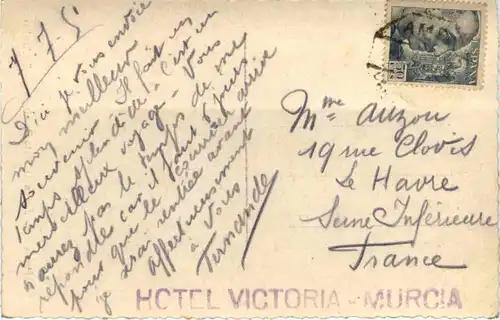 7 7 5
D'ici je vous envoie
mon meilleur
souvenir Il fait un
temps splendide - C'est un
merveilleux voyage - Vous
n'aurez pas le temps de me
répondre car il faut 5 jours
pour que le courrier arrive
je serai rentrée avant
affectueusement
à vous
Fernande
Mme Auzou
19 rue Clovis
Le Havre
Seine Inférieure
France
HOTEL VICTORIA - MURCIA